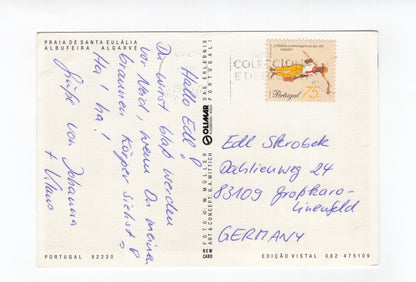 PRAIA DE SANTA EULÁLIA
ALBUFEIRA ALGARVE
Hallo Edl!
Du wirst blaß werden
vor Neid, wenn Du meinen
braunen Körper siehst!
Ha! ha!
Grüße von Johanna
+ Klaus
PORTUGAL 92230
DAS ERLEBNIS
OLIMAR
FOTO O.W. MÜLLER
ART & CONCEPT G.A. WITTICH
NEW
CARD
COLECCION
E DES
Portugal
75
Edl Skrobek
Dahlienweg 24
83109 Großkaro-
linenfeld
GERMANY
EDIÇÃO VISTAL 082 475109